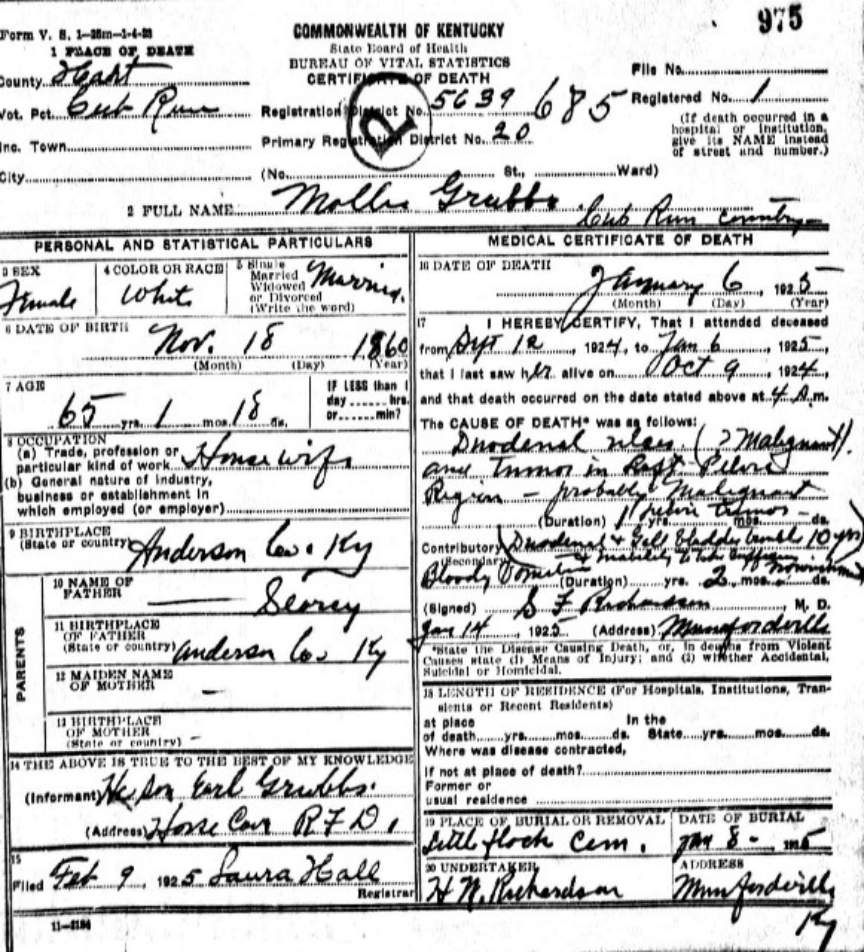 975
Form V. S. 1-
1 PLACE OF DEATH
COMMONWEALTH OF KENTUCKY
State Board of Health
BUREAU OF VITAL STATISTICS
CERTIFICATE OF DEATH
County Hart
Vot. Pct. Cub Run
Inc. Town
City
File No.
Registration District No. 5639 685
Registered No. 1
R
Primary Registration District No. 20
(If death occurred in a hospital or institution, give its NAME instead of street and number.)
(No. St., Ward)
2 FULL NAME Mollie Grubbs
Cub Run country
PERSONAL AND STATISTICAL PARTICULARS
3 SEX Female
4 COLOR OR RACE White
5 Single Married Widowed or Divorced (Write the word) Married.
6 DATE OF BIRTH Nov. 18 1860
(Month) (Day) (Year)
7 AGE
65 yrs. 1 mos. 18 ds.
IF LESS than 1 day hrs. or min?
8 OCCUPATION
(a) Trade, profession or particular kind of work Housewife
(b) General nature of industry, business or establishment in which employed (or employer)
9 BIRTHPLACE
(State or country) Anderson Co. Ky
PARENTS
10 NAME OF FATHER — Searcy
11 BIRTHPLACE OF FATHER
(State or country) Anderson Co. Ky
12 MAIDEN NAME OF MOTHER -
13 BIRTHPLACE OF MOTHER
(State or country) -
14 THE ABOVE IS TRUE TO THE BEST OF MY KNOWLEDGE
(Informant) Son Earl Grubbs.
(Address) Horse Cave R.F.D.
15
Filed Feb 9, 1925 Laura Hall
Registrar
11-3184
MEDICAL CERTIFICATE OF DEATH
16 DATE OF DEATH
January 6, 1925
(Month) (Day) (Year)
17 I HEREBY CERTIFY, That I attended deceased
from Sept 12, 1924, to Jan 6, 1925,
that I last saw her alive on Oct 9, 1924,
and that death occurred on the date stated above at 4 A.m.
The CAUSE OF DEATH* was as follows:
Duodenal ulcer (? Malignant).
and Tumor in Pelvic
Region - probably Malignant
(Duration) 1 yrs. mos. ds.
Contributory Duodenal & Gall Bladder 10 yrs
(Secondary)
Bloody (Duration) yrs. 2 mos. ds.
(Signed) S F Richardson, M. D.
Jan 14, 1925 (Address) Munfordville
*State the Disease Causing Death, or, in deaths from Violent Causes state (1) Means of Injury; and (2) whether Accidental, Suicidal or Homicidal.
18 LENGTH OF RESIDENCE (For Hospitals, Institutions, Transients or Recent Residents)
at place of death yrs. mos. ds. In the State yrs. mos. ds.
Where was disease contracted,
If not at place of death?
Former or usual residence
19 PLACE OF BURIAL OR REMOVAL
Little flock Cem.
DATE OF BURIAL
Jan 8 -
20 UNDERTAKER
H N. Richardson
ADDRESS
Munfordville
Ky